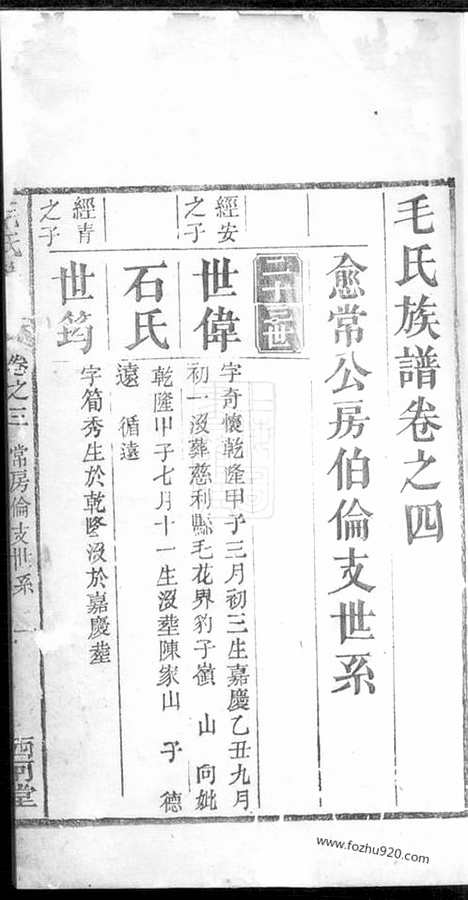 毛氏族譜卷之四
愈常公房伯倫支世系
二十二世
經安之子
世偉
字奇懷乾隆甲子三月初三生嘉慶乙丑九月
初一沒葬慈利縣毛花界豹子嶺 山 向妣
石氏
乾隆甲子七月十一生沒塟陳家山 子 德
遠 循遠
經青之子
世筠
字筍秀生於乾隆沒於嘉慶塟
毛氏
卷之三 常房倫支世系 一 西河堂
www.fozhu920.com